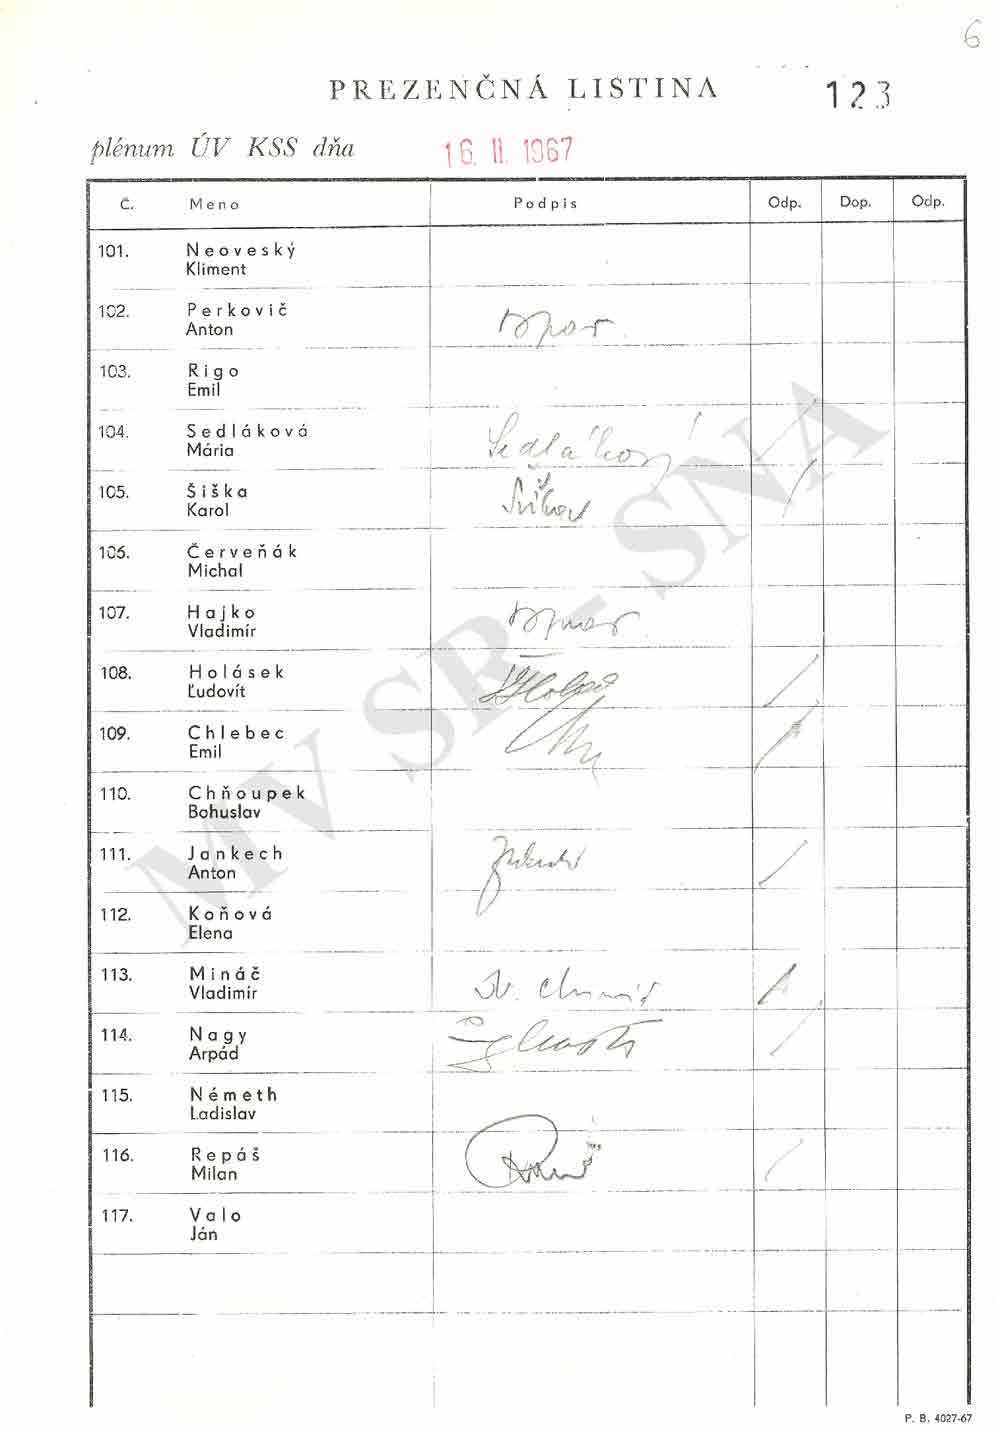 6
PREZENČNÁ LISTINA 123
plénum ÚV KSS dňa 16. II. 1967
Č. Meno Podpis Odp. Dop. Odp.
101. Neoveský
Kliment
102. Perkovič
Anton
103. Rigo
Emil
104. Sedláková Sedláková
Mária
105. Šiška
Karol
106. Červeňák
Michal
107. Hajko
Vladimír
108. Holásek
Ľudovít
109. Chlebec
Emil
110. Chňoupek
Bohuslav
111. Jankech
Anton
112. Koňová
Elena
113. Mináč
Vladimír
114. Nagy
Arpád
115. Németh
Ladislav
116. Repáš
Milan
117. Valo
Ján
MV SR - SNA
P. B. 4027-67